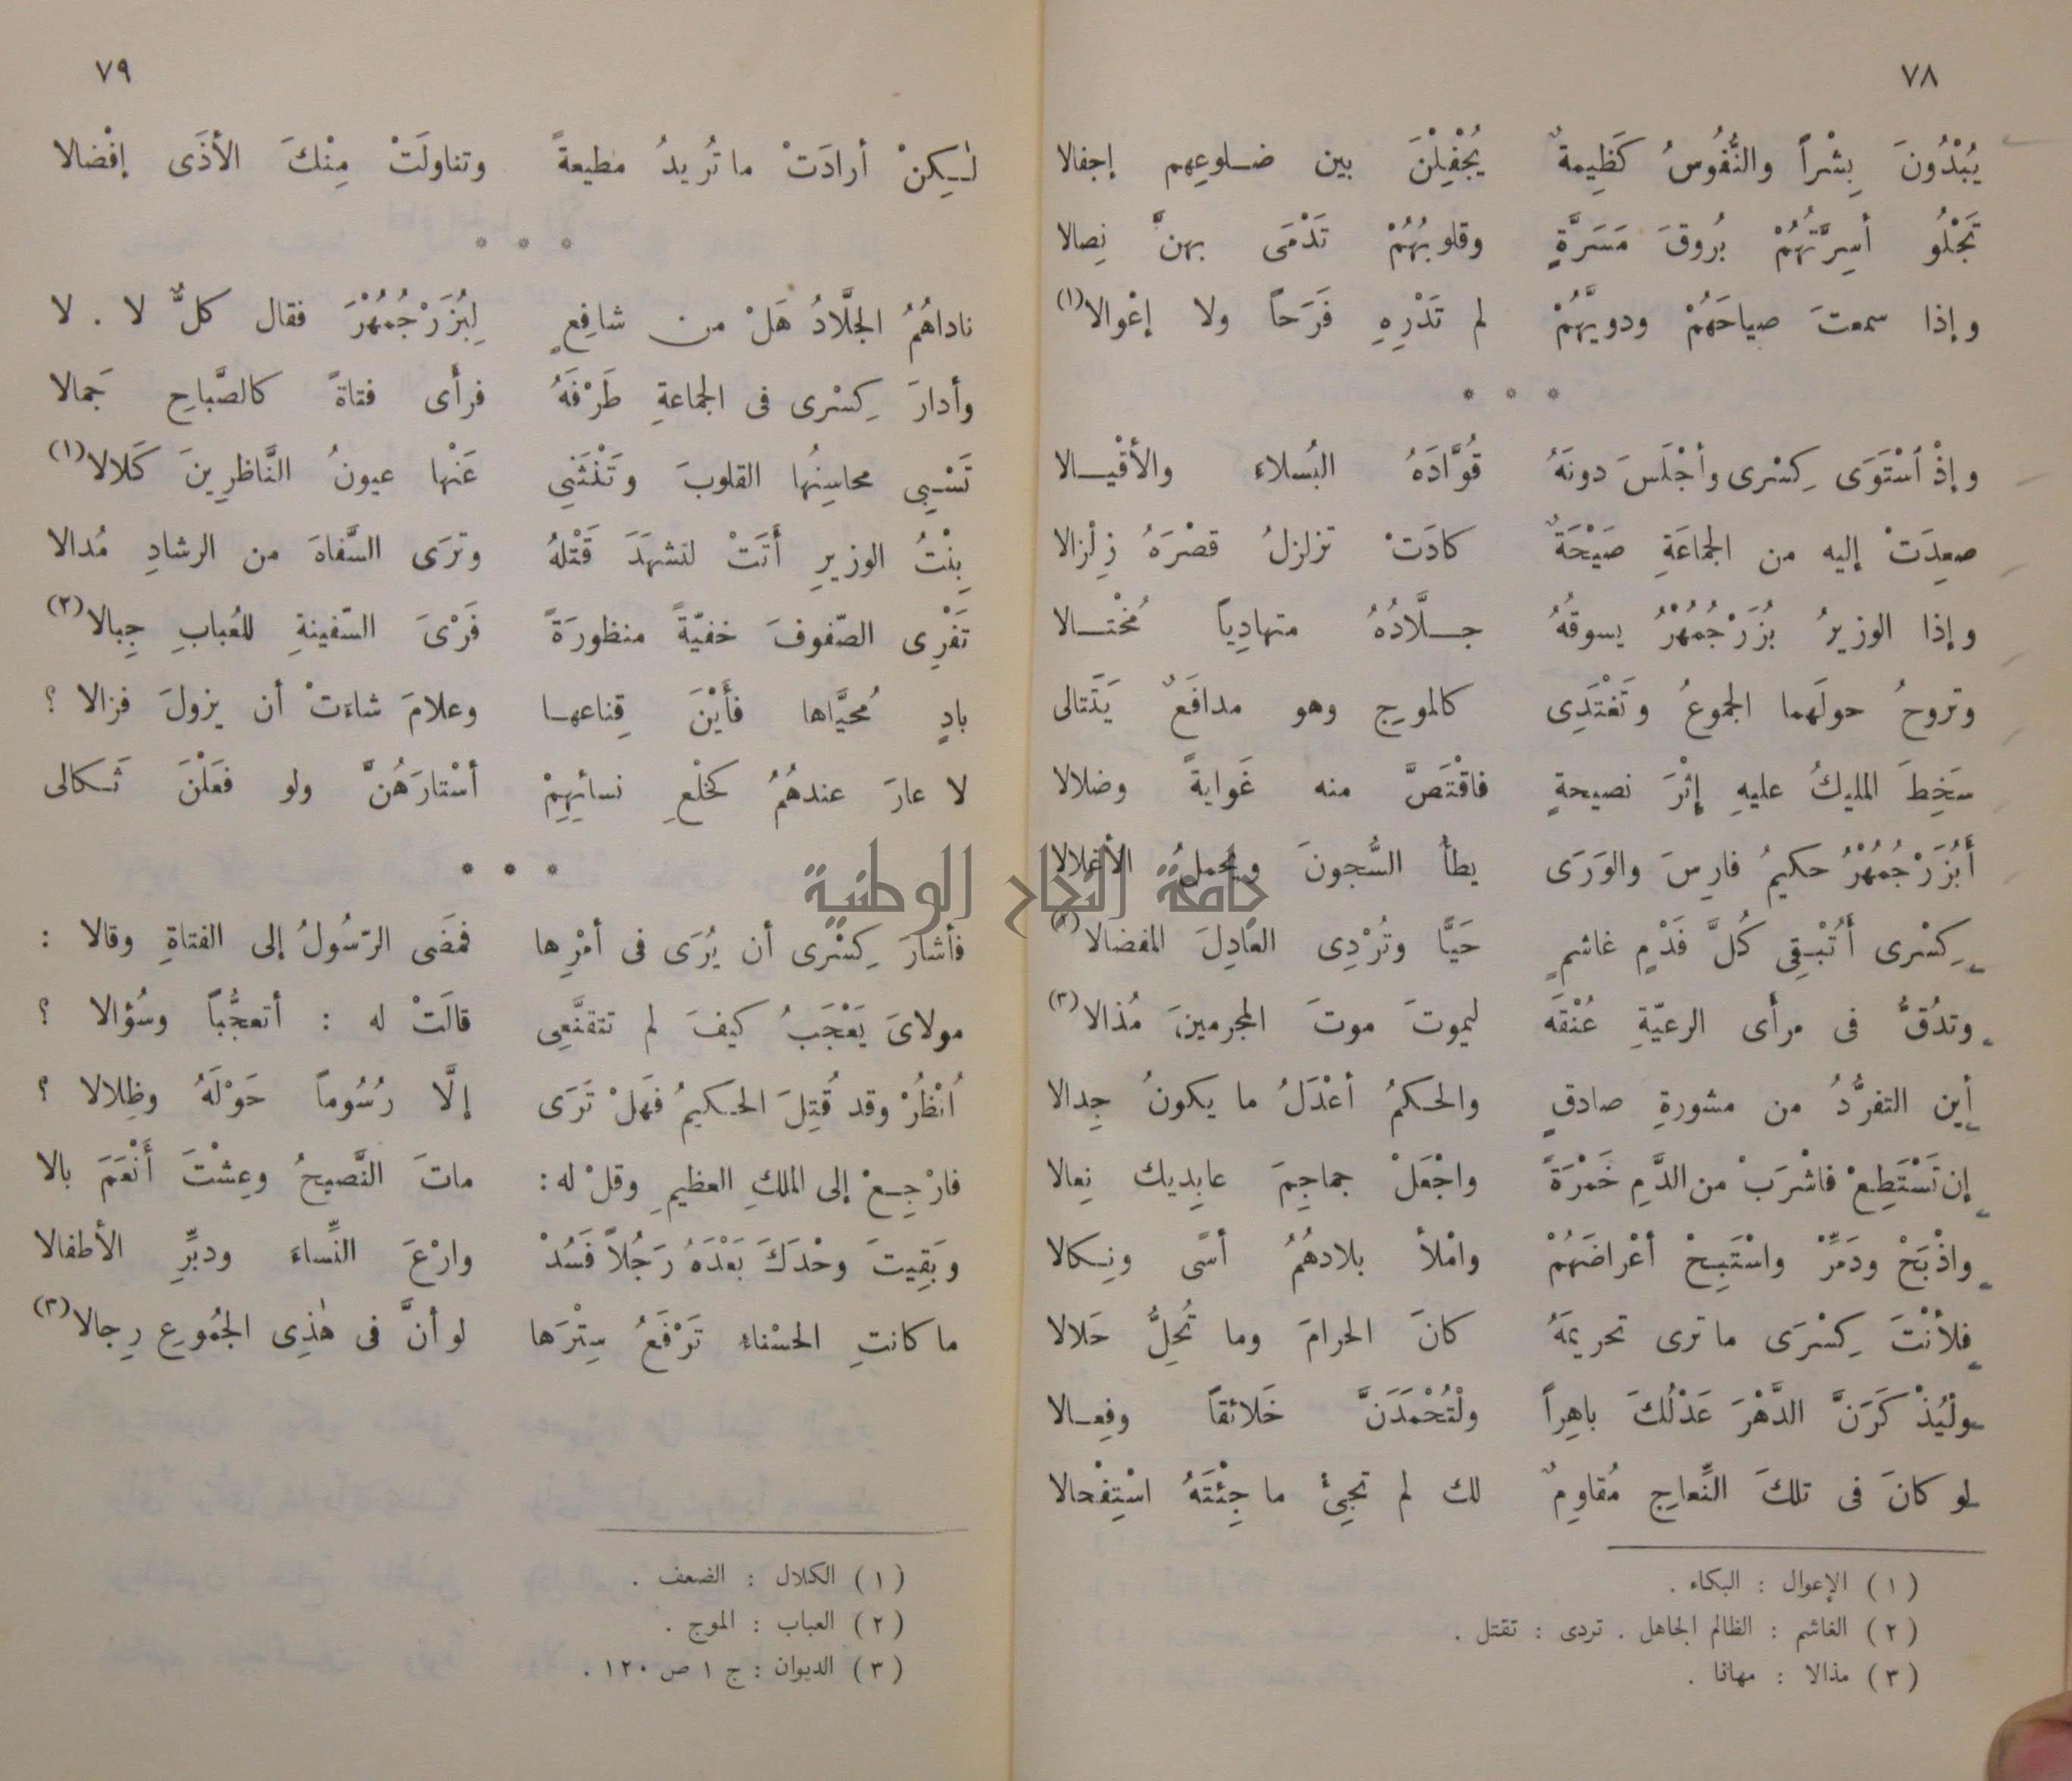 ٧٨
يُبْدُونَ بِشْراً والنُّفُوسُ كَظِيمةٌ يُجْفِلْنَ بين ضلوعِهم إجفالا
تَجْلُو أسِرَّتُهُمْ بُروقَ مَسَرَّةٍ وقلوبُهُمْ تَدْمَى بهنَّ نِصالا
وإذا سمعتَ صياحَهُمْ ودويَّهُمْ لم تَدْرِهِ فَرَحاً ولا إعْوالا(١)
* * *
وإذْ اسْتَوَى كِسْرى وأجْلَسَ دونَهُ قُوَّادَهُ البُسلاءَ والأقْيالا
صعِدَتْ إليه من الجماعَةِ صَيْحَةٌ كادَتْ تزلزلُ قصْرَهُ زِلْزالا
وإذا الوزيرُ بُزَرْجُمُهْرُ يسوقهُ جلَّادُهُ متهادِياً مُخْتالا
وتروحُ حولَهما الجموعُ وتَغْتَدِى كالموجِ وهو مدافَعٌ يَتَتالى
سَخِطَ المليكُ عليهِ إثْرَ نصيحةٍ فاقْتَصَّ منه غَوايةً وضلالا
أَبُزَرْجُمُهْرُ حكيمُ فارِسَ والوَرَى يطأُ السُّجونَ ويحملُ الأغلالا
كِسْرى أَتُبْقِى كُلَّ فَدْمٍ غاشمٍ حَيًّا وتُرْدِى العادِلَ المفضالا(٢)
وتدُقُّ فى مرأى الرعيّةِ عُنْقَه ليموتَ موتَ المجرمينَ مُذالا(٣)
أين التفرُّدُ من مشورةِ صادقٍ والحكمُ أعْدَلُ ما يكونُ جِدالا
إن تَسْتَطِعْ فاشْرَبْ من الدَّمِ خَمْرَةً واجْعَلْ جماجِمَ عابِديك نِعالا
واذْبَحْ ودَمِّرْ واسْتَبِحْ أعْراضَهُمْ وامْلأ بلادهُمُ أسًى ونكالا
فلأنْتَ كِسْرَى ما ترى تحريمَهُ كانَ الحرامَ وما تُحِلُّ حَلالا
ولْيُذْكَرَنَّ الدَّهْرَ عَدْلُكَ باهِراً ولْتُحْمَدَنَّ خَلائقاً وفِعالا
لو كانَ فى تلكَ النِّعاجِ مُقاوِمٌ لك لم تجِئْ ما جِئْتَهُ اسْتِفْحالا
(١) الإعوال : البكاء .
(٢) الغاشم : الظالم الجاهل . تردى : تقتل .
(٣) مذالا : مهانا .
٧٩
لكِنْ أرادَتْ ما تُريدُ مطيعةً وتناولَتْ مِنْكَ الأذَى إفْضالا
* * *
ناداهُمُ الجلَّادُ هَلْ من شافِعٍ لِبُزَرْجُمُهْرَ فقال كلٌّ لا . لا
وأدارَ كِسْرى فى الجماعةِ طَرْفَهُ فرأى فتاةً كالصَّباحِ جَمالا
تَسْبِى محاسِنُها القلوبَ وتَنْثَنِى عَنْها عيونُ النَّاظرِينَ كَلالا(١)
بِنْتُ الوزيرِ أَتَتْ لتشهَدَ قَتْلهُ وترَى السَّفاهَ من الرشادِ مُدالا
تَفْرِى الصّفوفَ خفيّةً منظورَةً فَرْىَ السّفينةِ للعُبابِ جِبالا(٢)
بادٍ مُحيَّاها فأَيْنَ قِناعها وعلامَ شاءتْ أن يزولَ فزالا ؟
لا عارَ عندهُمُ كخلْعِ نسائهِمْ أسْتارَهُنَّ ولو فعَلْنَ ثَكالى
* * *
فأشارَ كِسْرى أن يُرَى فى أمْرِها فمَضَى الرّسُولُ إلى الفتاةِ وقالا :
مولاىَ يَعْجَبُ كيفَ لم تتقنَّعِى قالَتْ له : أتعجُّباً وسُؤالا ؟
اُنْظُرْ وقد قُتِلَ الحكيمُ فهلْ تَرَى إلَّا رُسُوماً حَوْلَهُ وظِلالا ؟
فارْجِعْ إلى الملكِ العظيمِ وقلْ له : ماتَ النَّصيحُ وعِشْتَ أَنْعَمَ بالا
وبَقِيتَ وحْدَكَ بَعْدَهُ رَجُلاً فَسُدْ وارْعَ النِّساءَ ودبِّرِ الأطفالا
ما كانتِ الحسْناءِ تَرْفَعُ سِتْرَها لو أنَّ فى هٰذِى الجُموعِ رِجالا(٣)
(١) الكلال : الضعف .
(٢) العباب : الموج .
(٣) الديوان : ج ١ ص ١٢٠ .
جامعة النجاح الوطنية